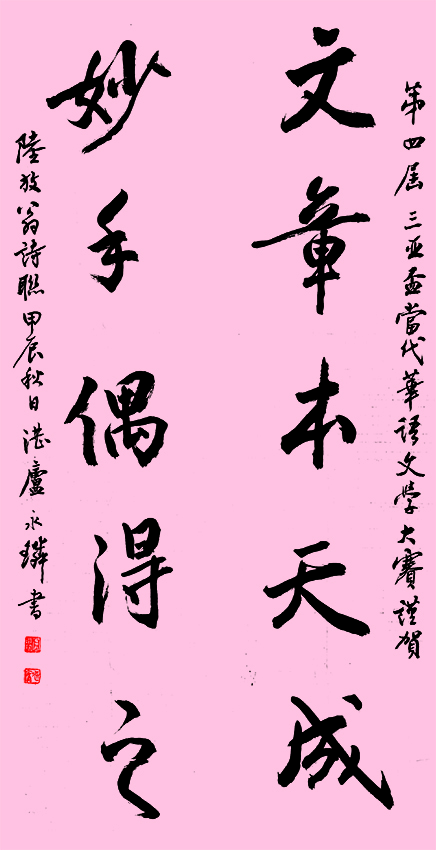 第四届三亚盃當代華語文学大賽謹賀
文章本天成
妙手偶得之
陸放翁詩聯甲辰秋日湛廬永璘書